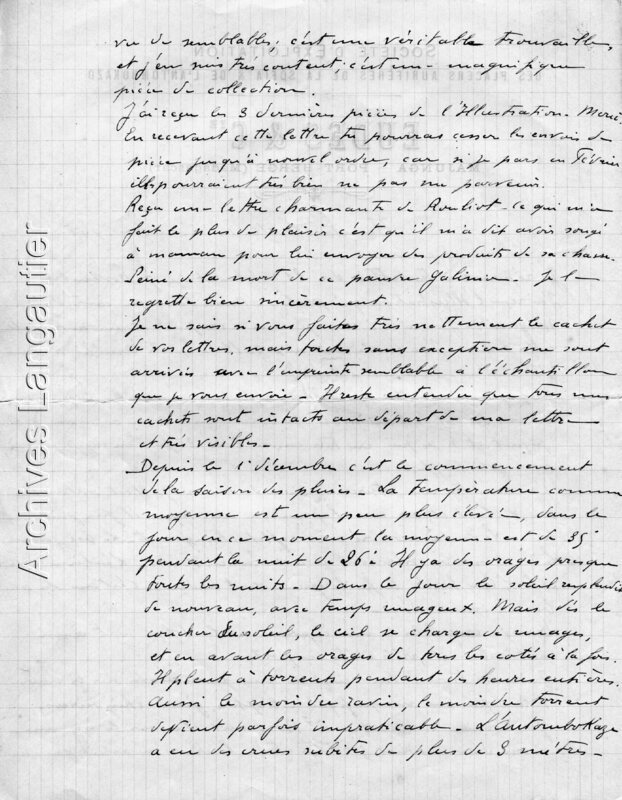 vu de semblables; c'est une véritable trouvaille,
et j'en suis très content c'est une magnifique
pièce de collection.
J'ai reçu les 3 dernières pièces de l'Illustration. Merci.
En recevant cette lettre tu pourras cesser les envois de
pièce jusqu'à nouvel ordre, car si je pars en Février
ils pourraient très bien ne pas me parvenir.
Reçu une lettre charmante de Rouliot ce qui m'a
fait le plus de plaisir c'est qu'il m'a dit avoir songé
à maman pour lui envoyer des produits de sa chasse.
Peiné de la mort de ce pauvre Galinier. Je le
regrette bien sincèrement.
Je ne sais si vous faites très nettement le cachet
de vos lettres, mais toutes sans exception me sont
arrivées avec l'empreinte semblable à l'échantillon
que je vous envoie. Il reste entendu que tous mes
cachets sont intacts au départ de ma lettre
et très visibles.
Depuis le 1er décembre c'est le commencement
de la saison des pluies. La température comme
moyenne est un peu plus élevée, dans le
jour en ce moment la moyenne est de 35°
pendant la nuit de 26° Il y a des orages presque
toutes les nuits. Dans le jour le soleil resplendit
de nouveau, avec temps nuageux. Mais dès le
coucher du soleil, le ciel se charge de nuages,
et en avant les orages de tous les cotés à la fois.
Il pleut à torrents pendant des heures entières.
Aussi le moindre ravin, le moindre torrent
devient parfois impraticable. L'Antombokazo
a eu des crues subites de plus de 3 mètres.
Archives Langautier